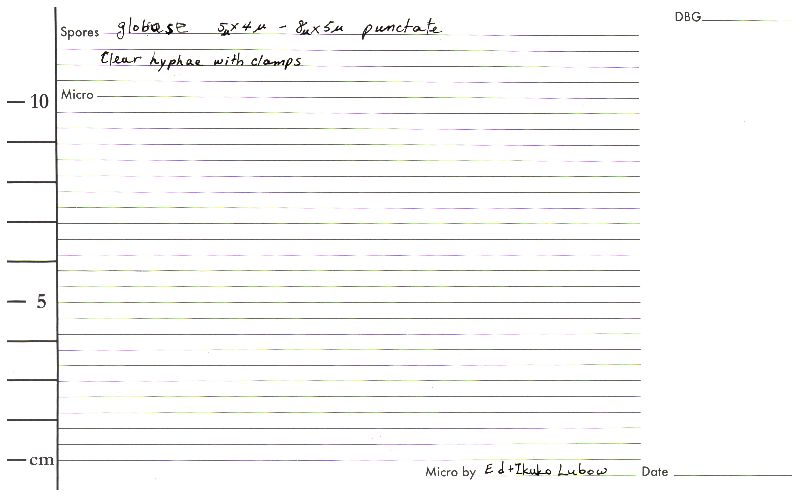 Spores globose 5µ×4µ - 8µ×5µ punctate DBG
Clear hyphae with clamps
Micro
10
5
cm
Micro by Ed+Ikuko Lubow Date